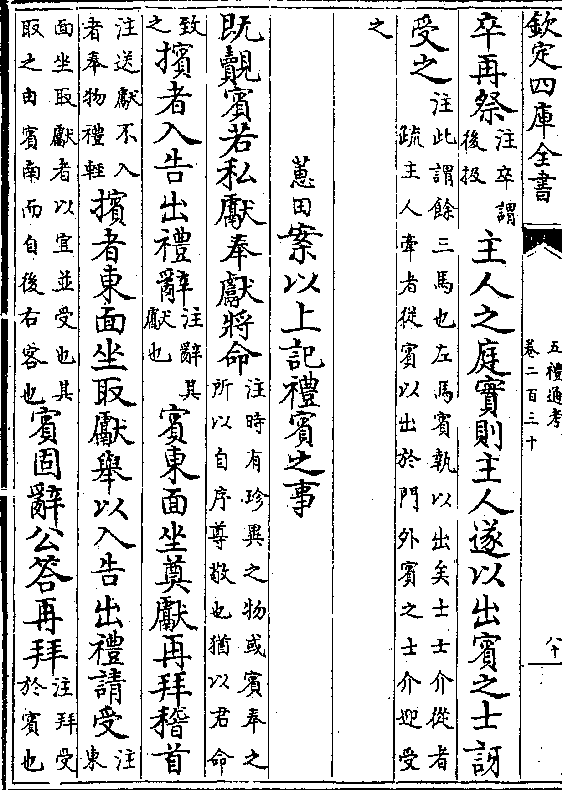 欽定四庫全書
五禮通考
卷二百三十
八十
卒再祭注卒謂後扱主人之庭實則主人遂以出賓之士訝
受之注此謂餘三馬也左馬賓執以出矣士士介從者疏主人牽者從賓以出於門外賓之士介迎受
之
蕙田案以上記禮賓之事
既覿賓若私獻奉獻將命注時有珍異之物或賓奉之所以自序尊敬也猶以君命
致之擯者入告出禮辭注辭其獻也賓東面坐奠獻再拜稽首
注送獻不入者奉物禮輕擯者東面坐取獻舉以入告出禮請受注東
面坐取獻者以宜並受也其取之由賓南而自後右客也賓固辭公答再拜注拜受於賓也